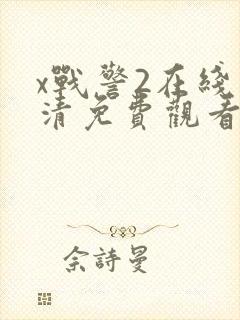 x戰警2在綫
清免費觀看
佘詩曼